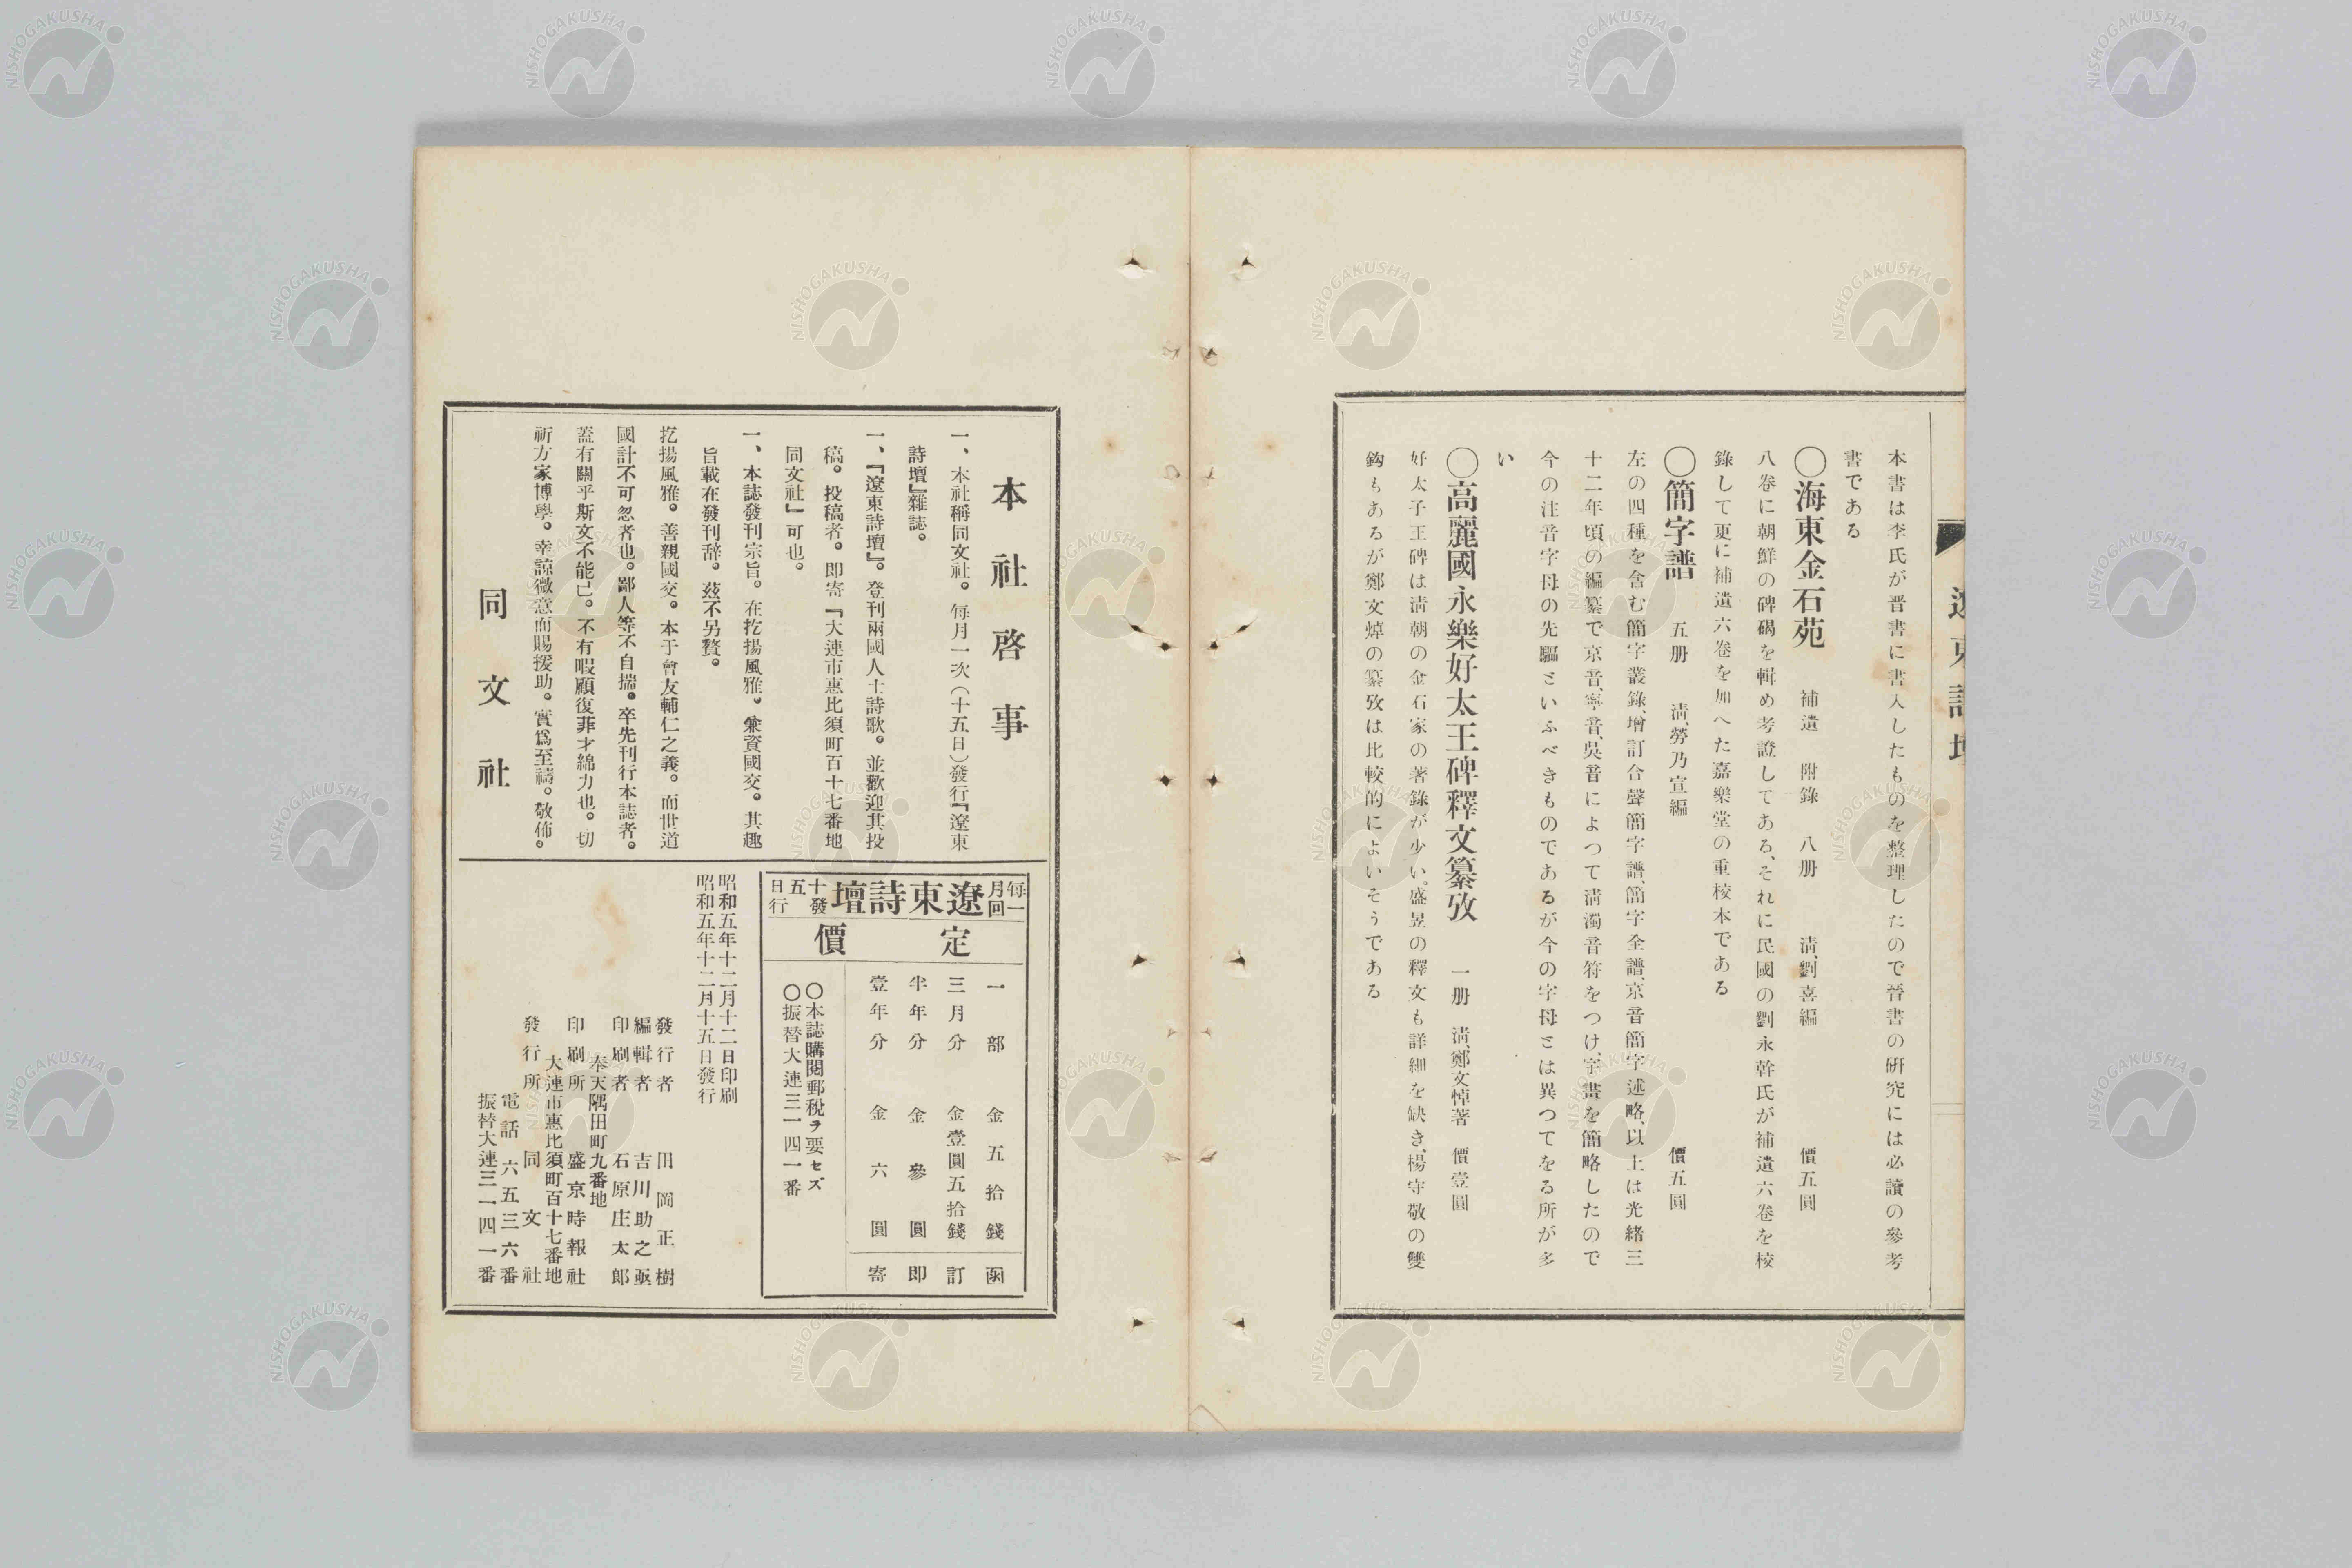 本書は李氏が晋書に書入したものを整理したので晉書の研究には必讀の參考
書である
〇海東金石苑 補遺 附錄 八册 淸、劉喜編 價五圓
八卷に朝鮮の碑碣を輯め考證してある、それに民國の劉永幹氏が補遺六卷を校
錄して更に補遺六卷を加へた嘉樂堂の重校本である
〇簡字譜 五册 淸、勞乃宣編 價五圓
左の四種を含む簡字叢錄、增訂合聲簡字譜、簡字全譜、京音簡字述略、以上は光緖三
十二年頃の編纂で京音、寧音、吳音によつて淸濁音符をつけ、字畫を簡略したので
今の注音字母の先驅といふべきものであるが今の字母とは異つてをる所が多
い
〇高麗國永樂好太王碑釋文纂攷 一册 淸、鄭文焯著 價壹圓
好太子王碑は淸朝の金石家の著錄が少い。盛昱の釋文も詳細を缺き、楊守敬の雙
鈎もあるが鄭文焯の纂攷は比較的によいそうである
本社啓事
一、本社稱同文社。每月一次(十五日)發行『遼東
詩壇』雜誌。
一、『遼東詩壇』。登刊兩國人士詩歌。並歡迎其投
稿。投稿者。即寄『大連市惠比須町百十七番地
同文社』可也。
一、本誌發刊宗旨。在扢揚風雅。兼資國交。其趣
旨載在發刊辭。玆不另贅。
扢揚風雅。善親國交。本于會友輔仁之義。而世道
國計不可忽者也。鄙人等不自揣。卒先刊行本誌者。
蓋有關乎斯文不能已。不有暇顧復菲才綿力也。切
祈方家博學。幸諒微意而賜援助。實爲至禱。敬佈。
同文社
每月一回 遼東詩壇 十五日發行
定價
一部 金五拾錢 函
三月分 金壹圓五拾錢 訂
半年分 金參圓 即
壹年分 金六圓 寄
〇本誌購閱郵稅ヲ要セズ
〇振替大連三一四一番
昭和五年十二月十二日印刷
昭和五年十二月十五日發行
發行者 田岡正樹
編輯者 吉川助之亟
印刷者 石原庄太郎
奉天隅田町九番地
印刷所 盛京時報社
大連市惠比須町百十七番地
發行所 同文社
電話六五三六番
振替大連三一四一番